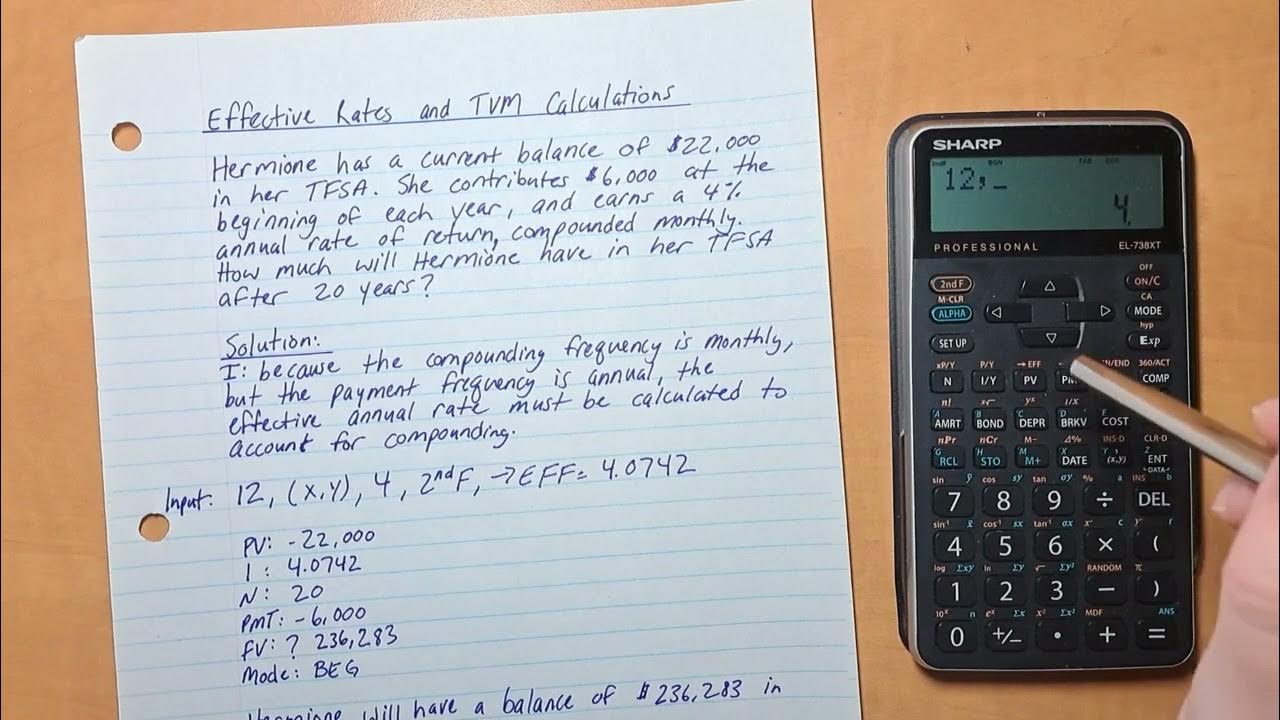 Effective Rates and TVM Calculations
Hermione has a current balance of $22,000
in her TFSA. She contributes $6,000 at the
beginning of each year, and earns a 4%
annual rate of return, compounded monthly.
How much will Hermione have in her TFSA
after 20 years?
Solution:
I: because the compounding frequency is monthly,
but the payment frequency is annual, the
effective annual rate must be calculated to
account for compounding.
Input: 12, (x,y), 4, 2ndF, →EFF= 4.0742
PV: -22,000
I: 4.0742
N: 20
PMT: -6,000
FV: ? 236,283
Mode: BEG
Hermione will have a balance of $236,283 in
SHARP
2ndF BGN TAB DEG
12,_
4.
PROFESSIONAL EL-738XT
OFF
2nd F ON/C
M-CLR CA
ALPHA MODE
hyp
SET UP Exp
xP/Y P/Y →EFF N/END 360/ACT
N I/Y PV PM COMP
n! x√ yˣ 1/x
A B C D E
AMRT BOND DEPR BRKV COST
nPr nCr M- Δ% INS-D CLR-D
G H X Y Z
RCL STO M+ DATE (x,y) ENT
-DATA-
sin ȳ cos sy tan σy % a INS b
7 8 9 ÷ DEL
sin⁻¹ x̄ cos⁻¹ sx tan⁻¹ σx c r
4 5 6 × (
log Σxy ln Σy √ Σy² RANDOM π
1 2 3 − )
10ˣ n eˣ Σx x² Σx² MDF ANS
0 +/− • + =